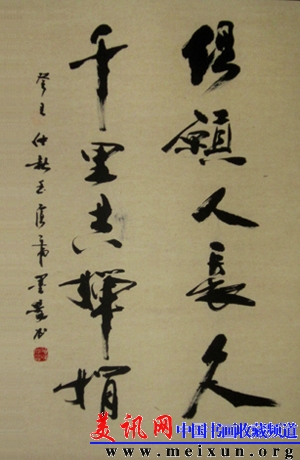 但願人長久
千里共嬋娟
仲秋
美讯网 中国书画收藏频道
www.meixun.org